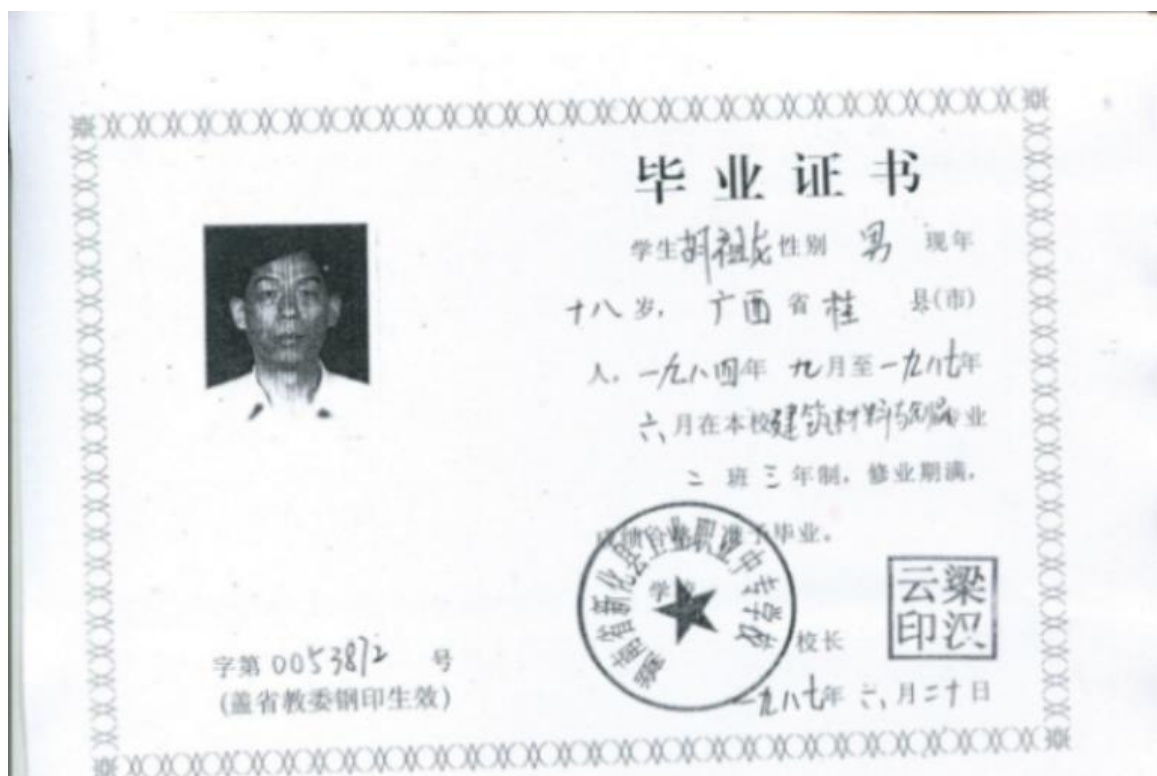 毕业证书
学生胡祖龙性别 男 现年
十八岁，广西省桂 县(市)
人，一九八四年 九月至一九八七年
六月在本校建筑材料与 专业
二 班 三 年制，修业期满，
成绩合格 准予毕业。
湖南省新化县工业职业中专学校
学校
校长
梁汉云印
一九八七年 六 月二十日
字第 0053872 号
(盖省教委钢印生效)